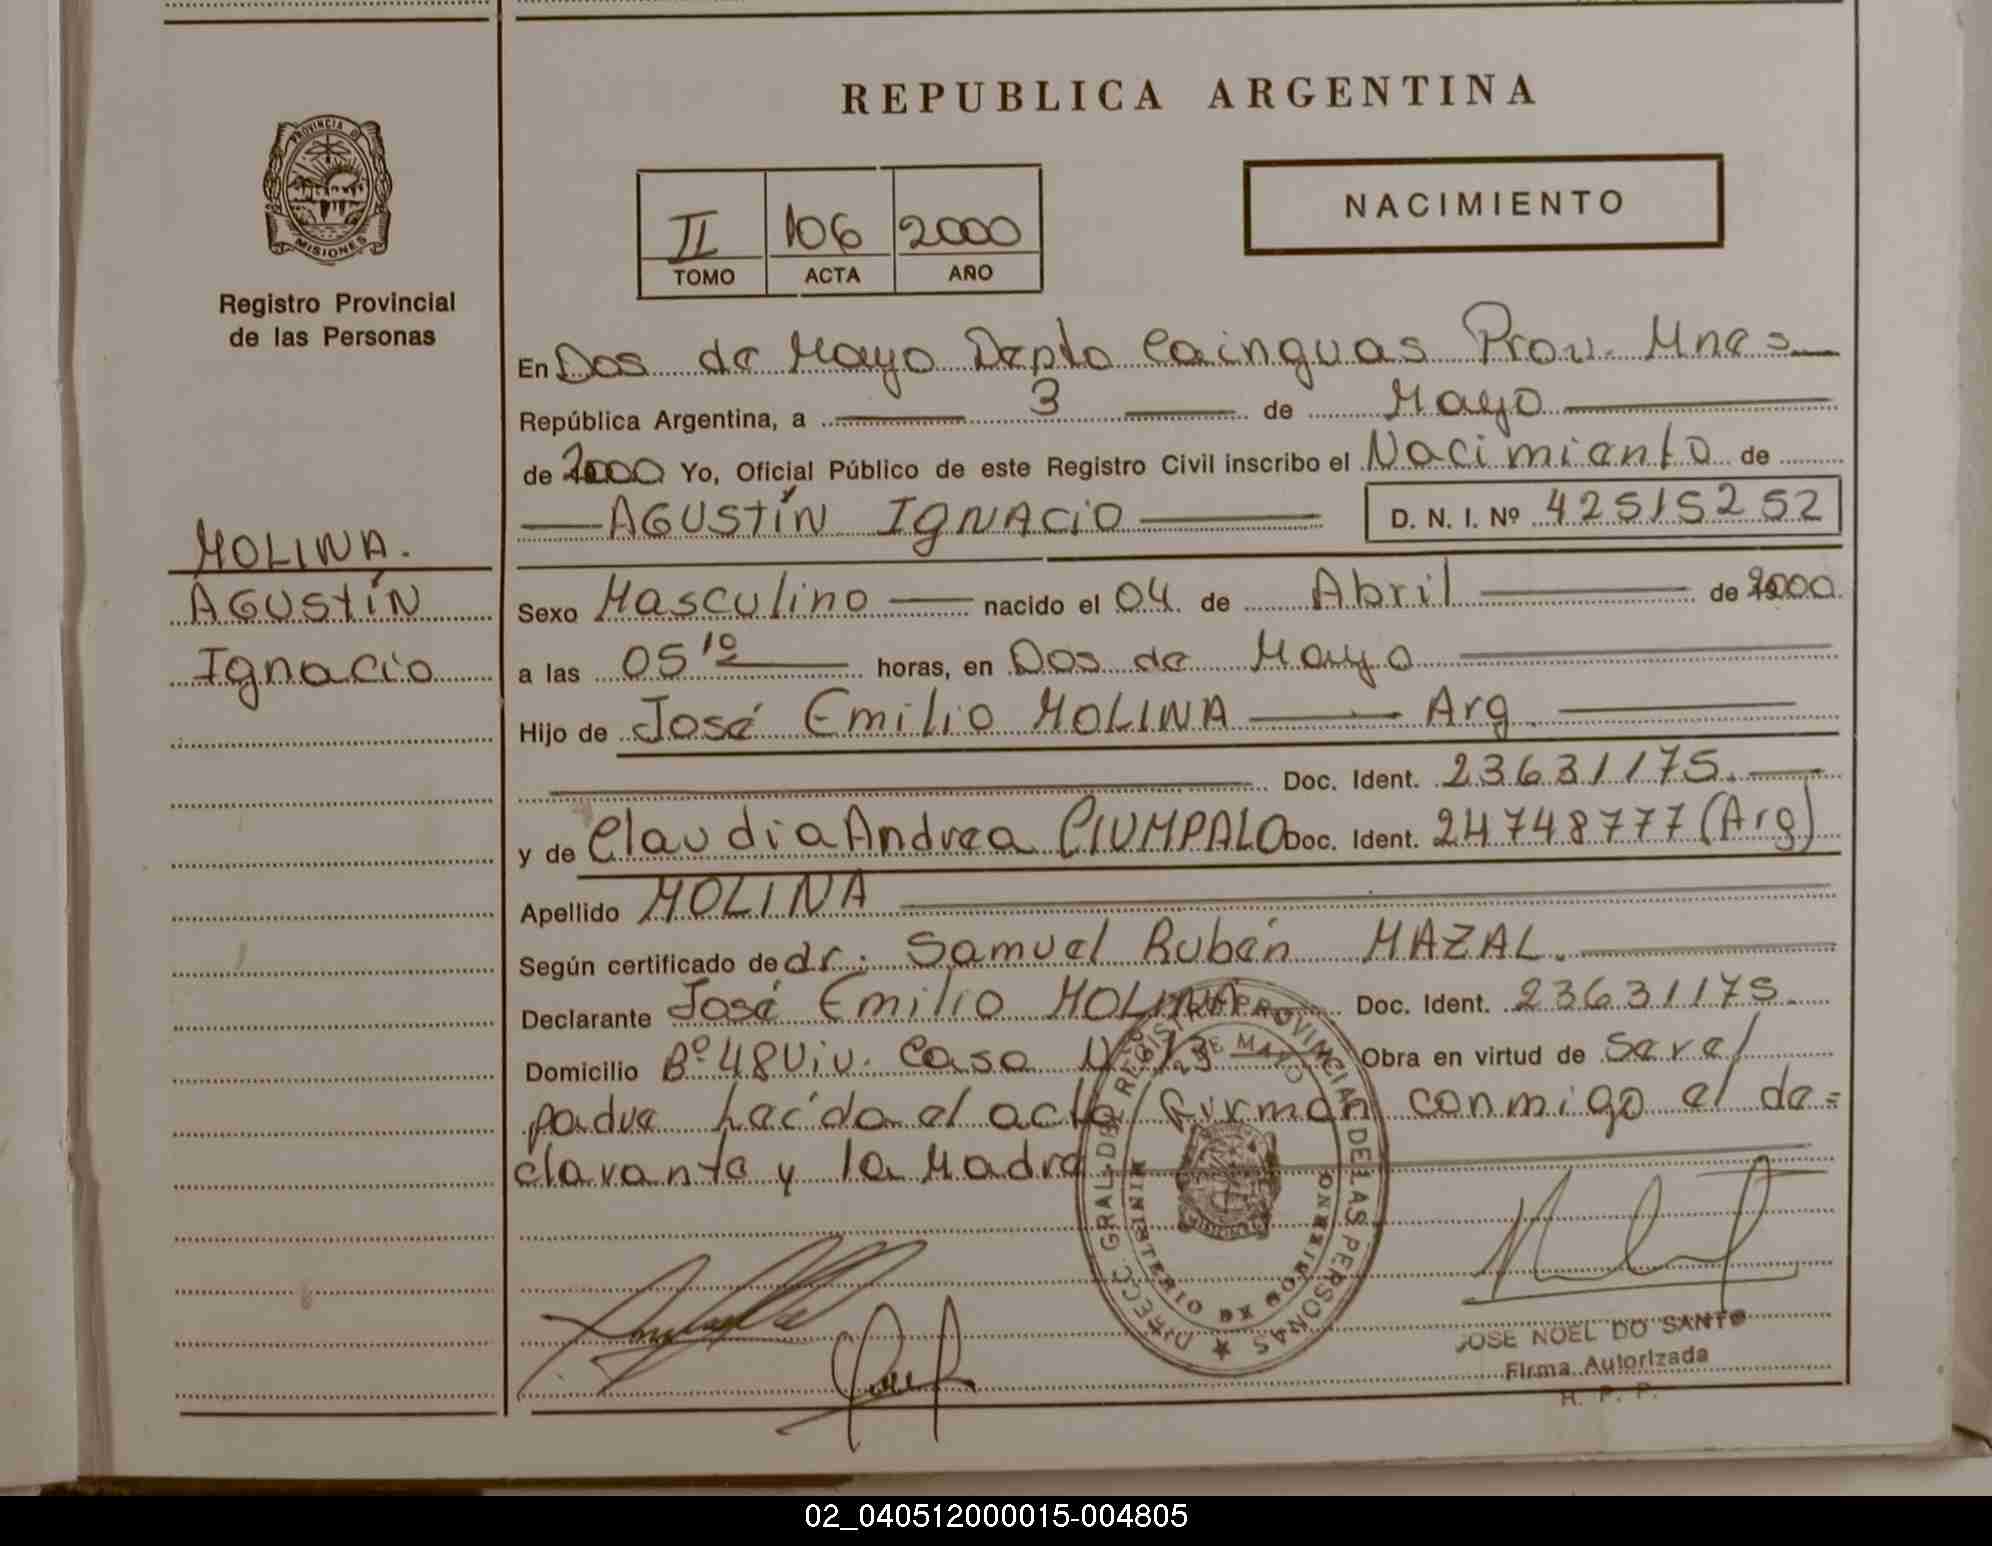 REPUBLICA ARGENTINA
PROVINCIA D MISIONES
Registro Provincial
de las Personas
II 106 2000
TOMO ACTA AÑO
NACIMIENTO
En Dos de Mayo Depto Cainguas Prov. Mnes
República Argentina, a 3 de Mayo
de 2000 Yo, Oficial Público de este Registro Civil inscribo el Nacimiento de
AGUSTÍN IGNACIO D. N. I. Nº 42515252
MOLINA.
AGUSTÍN
Ignacio
Sexo Masculino nacido el 04 de Abril de 2000
a las 05 10 horas, en Dos de Mayo
Hijo de José Emilio MOLINA Arg.
Doc. Ident. 23631175.
y de Claudia Andrea CIUMPALO Doc. Ident. 24748777 (Arg)
Apellido MOLINA
Según certificado de dr. Samuel Rubén MAZAL.
Declarante José Emilio MOLINA Doc. Ident. 23631175.
Domicilio Bº 48 Viv. Casa Nº 13 Obra en virtud de Ser el
padre leída el acta firman conmigo el de=
clarante y la Madre
DIRECC. GRAL. DEL REGISTRO PROVINCIAL DE LAS PERSONAS
2 DE MAYO
MINISTERIO DE GOBIERNO
JOSE NOEL DO SANTO
Firma Autorizada
R. P. P.
02_040512000015-004805